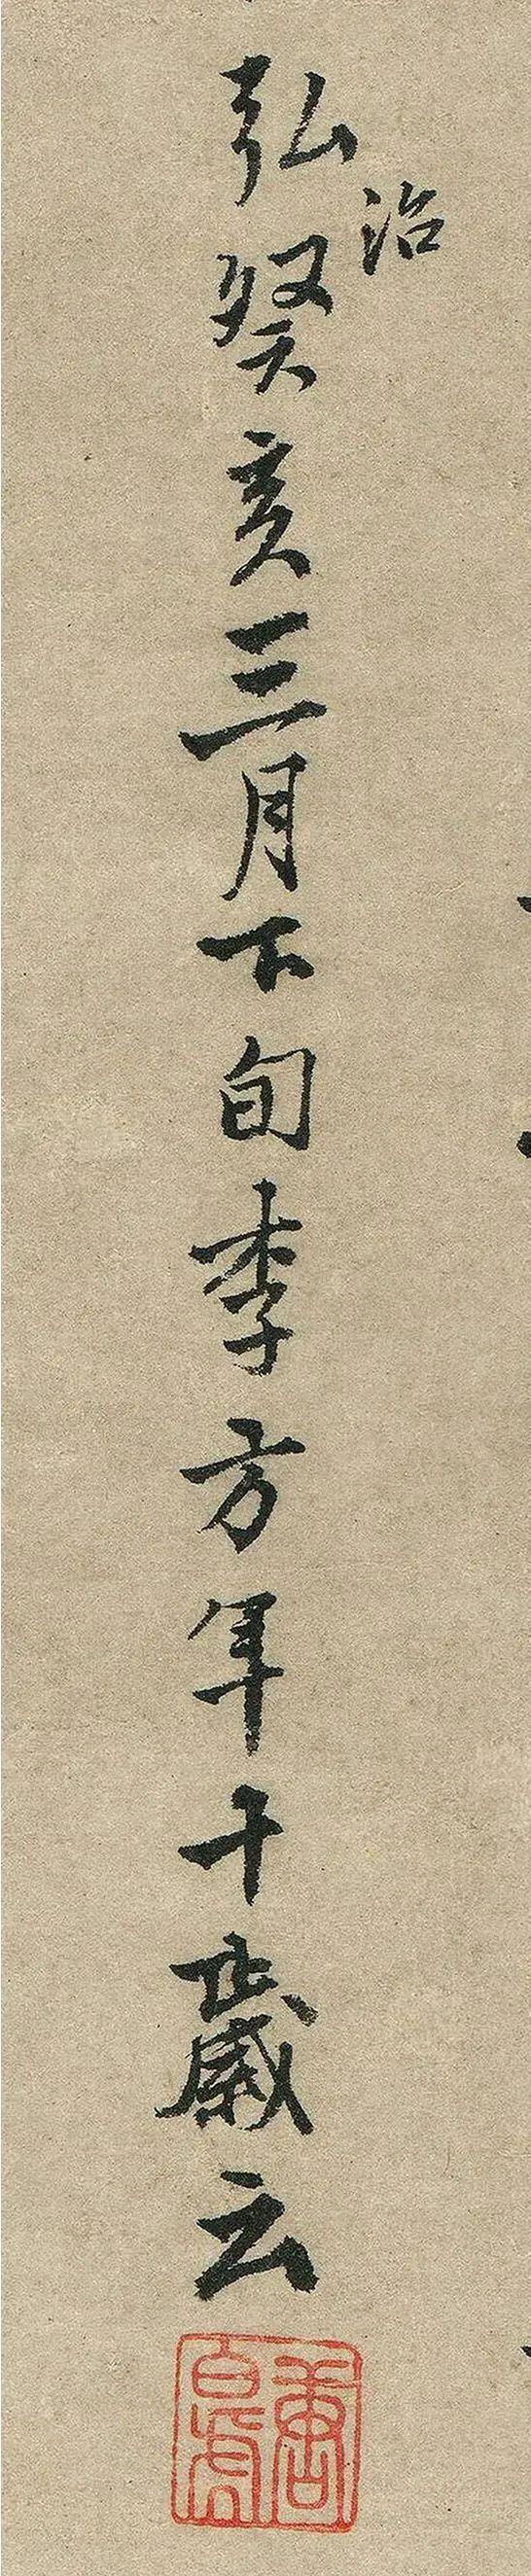 弘治癸亥三月下旬李方年十歲云
唐白虎